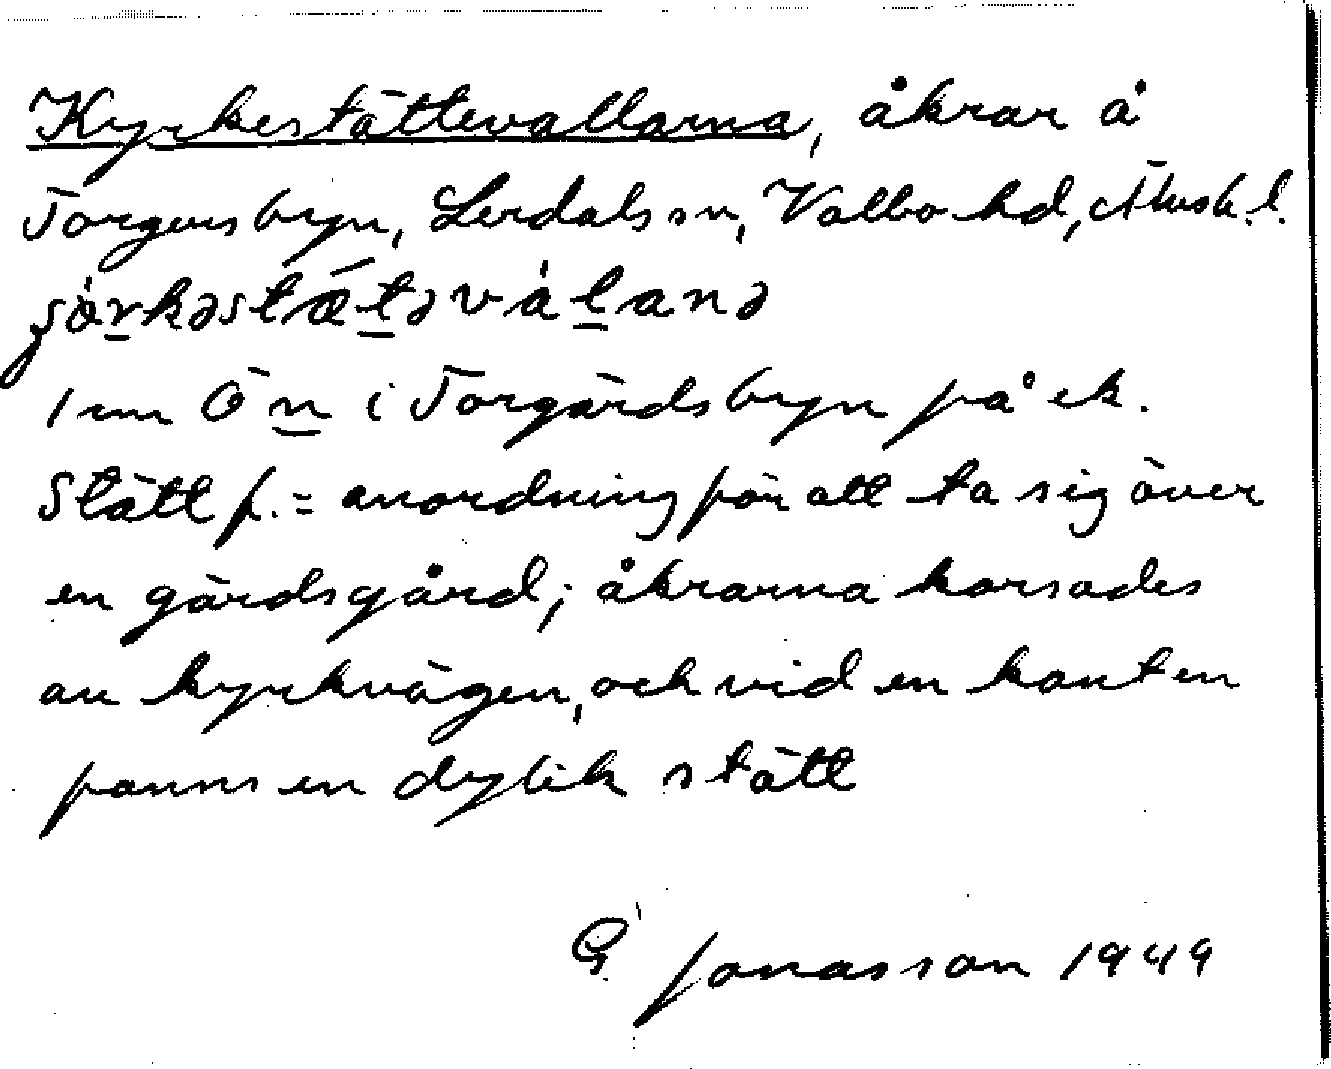 Kyrkestättevallarna, åkrar å
Torgersbyn, Lerdals sn, Valbo hd, Älvsb. l.
Inn Ön i Torgärdsbyn på ek.
Stätt f. = anordning för att ta sig över
en gärdsgård; åkrarna korsades
av kyrkvägen, och vid en kanten
fanns en dylik stätt
G Jonasson 1949